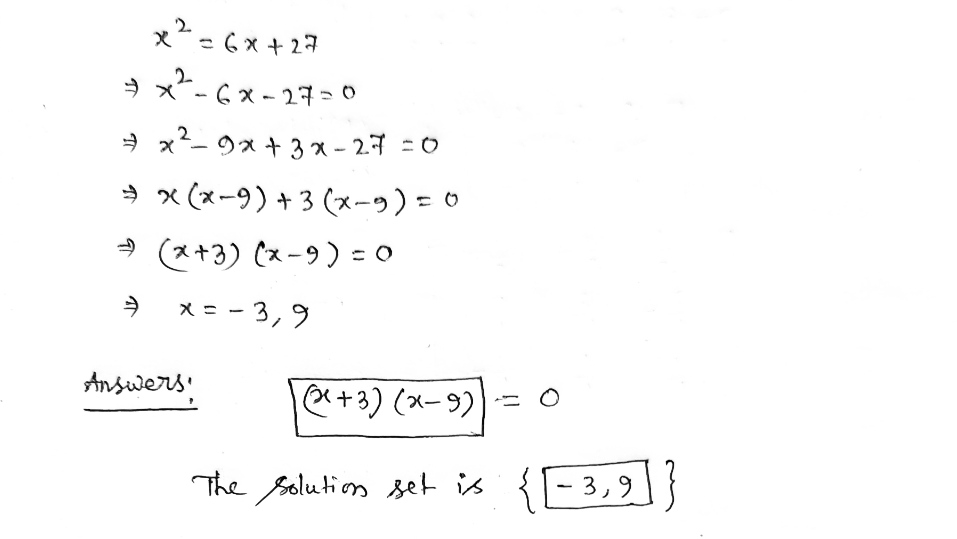 x² = 6x + 27
⇒ x² - 6x - 27 = 0
⇒ x² - 9x + 3x - 27 = 0
⇒ x(x-9) + 3(x-9) = 0
⇒ (x+3) (x-9) = 0
⇒ x = -3, 9
Answers:
(x+3) (x-9) = 0
The solution set is {-3, 9}